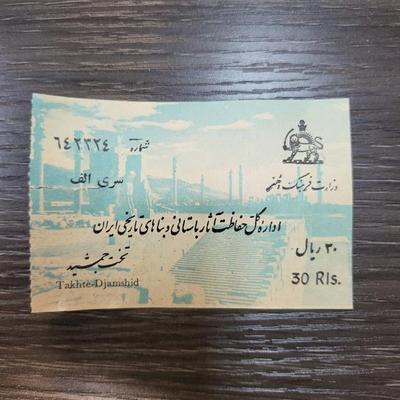 شماره ٦٤٢٣٢٤
سری الف
وزارت فرهنگ و هنر
اداره کل حفاظت آثار باستانی و بناهای تاریخی ایران
تخت جمشید
Takhte-Djamshid
۳۰ ریال
30 Rls.